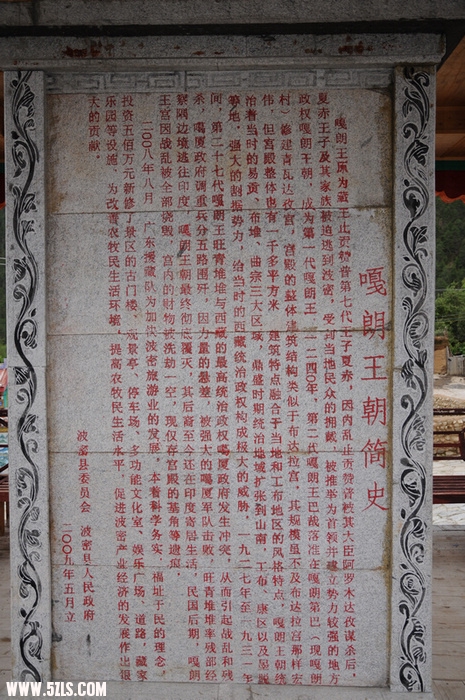 嘎朗王朝简史
嘎朗王原为藏王止贡赞普第七代王子夏赤，因内乱止贡赞普被其大臣阿罗木达孜谋杀后，
夏赤王子及其家族被迫逃到波密，受到当地民众的拥戴，被推举为首领并建立势力较强的地方
政权嘎朗王朝，成为第一代嘎朗王。一二四〇年，第二代嘎朗王巴裁落准在嘎朗第巴（现嘎朗
村）修建青瓦达孜宫，宫殿的整体建筑结构类似于布达拉宫，其规模虽不及布达拉宫那样宏
伟，但宫殿整体也有一千多平方米，建筑特点融合于当地和工布地区的风格特点，嘎朗王朝统
治着当时的易贡、布堆、曲宗三大区域，鼎盛时期统治地域扩张到山南、工布、康区以及墨脱
等地，强大的割据势力，给当时的西藏统治政权构成极大的威胁，一九二七年至一九三一年
间，第二十七代嘎朗王旺青堆堆与西藏的最高统治政权噶厦政府发生冲突，从而引起战乱和残
杀，噶厦政府调重兵分五路围歼，因力量的悬差，被强大的噶厦军队击败，旺青堆堆率残部经
察隅边境逃往印度，嘎朗王朝最终彻底覆灭，其后裔至今还在印度寄居生活，民国后期，嘎朗
王宫因战乱被全部烧毁，宫内的财物被洗劫一空，现仅存宫殿的基角等遗痕。
二〇〇八年八月，广东援藏队为加快波密旅游业的发展，本着科学务实、福址于民的理念
投资五佰万元新修了景区的古门楼、观景亭、停车场、多功能文化室、娱乐广场、道路，藏家
乐园等设施，为改善农牧民生活环境，提高农牧民生活水平，促进波密产业经济的发展作出很
大的贡献
波密县委员会 波密县人民政府
二〇〇九年五月立
www.5ZLS.COM